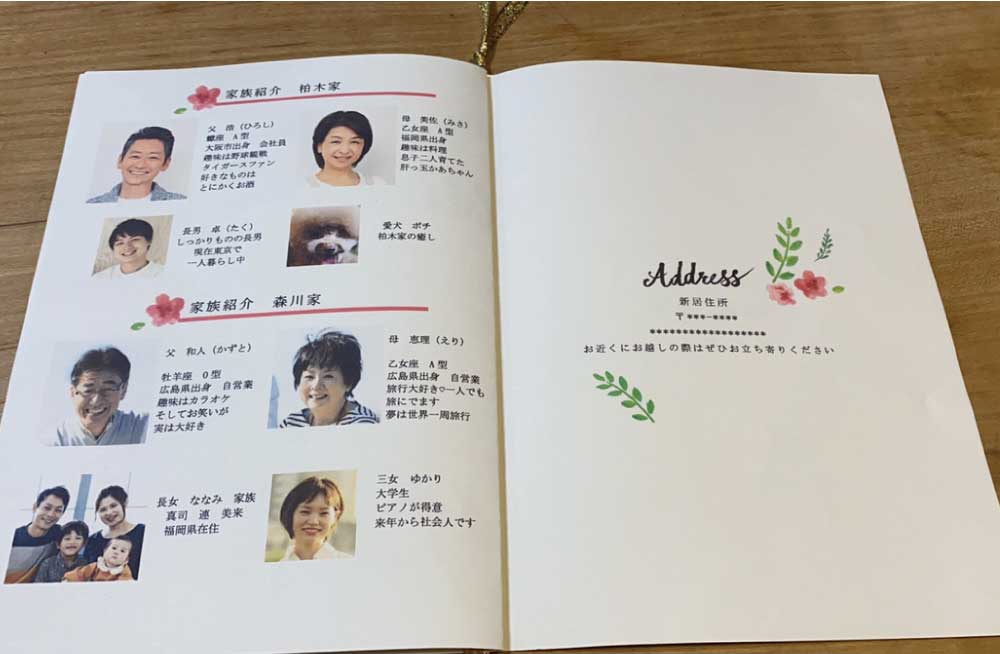 家族紹介　柏木家
父　浩（ひろし）
蠍座　A型
大阪市出身　会社員
趣味は野球観戦
タイガースファン
好きなものは
とにかくお酒
母　美佐（みき）
乙女座　A型
福岡県出身
趣味は料理
息子二人育てた
肝っ玉かあちゃん
長男　卓（たく）
しっかりものの長男
現在東京で
一人暮らし中
愛犬　ポチ
柏木家の癒し
家族紹介　森川家
父　和人（かずと）
牡羊座　O型
広島県出身　自営業
趣味はカラオケ
そしてお笑いが
実は大好き
母　恵理（えり）
乙女座　A型
広島県出身　自営業
旅行大好き♡一人でも
旅にでます
夢は世界一周旅行
長女　ななみ　家族
真司　連　美来
福岡県在住
三女　ゆかり
大学生
ピアノが得意
来年から社会人です
Address
新居住所
〒***-****
******************
お近くにお越しの際はぜひお立ち寄りください